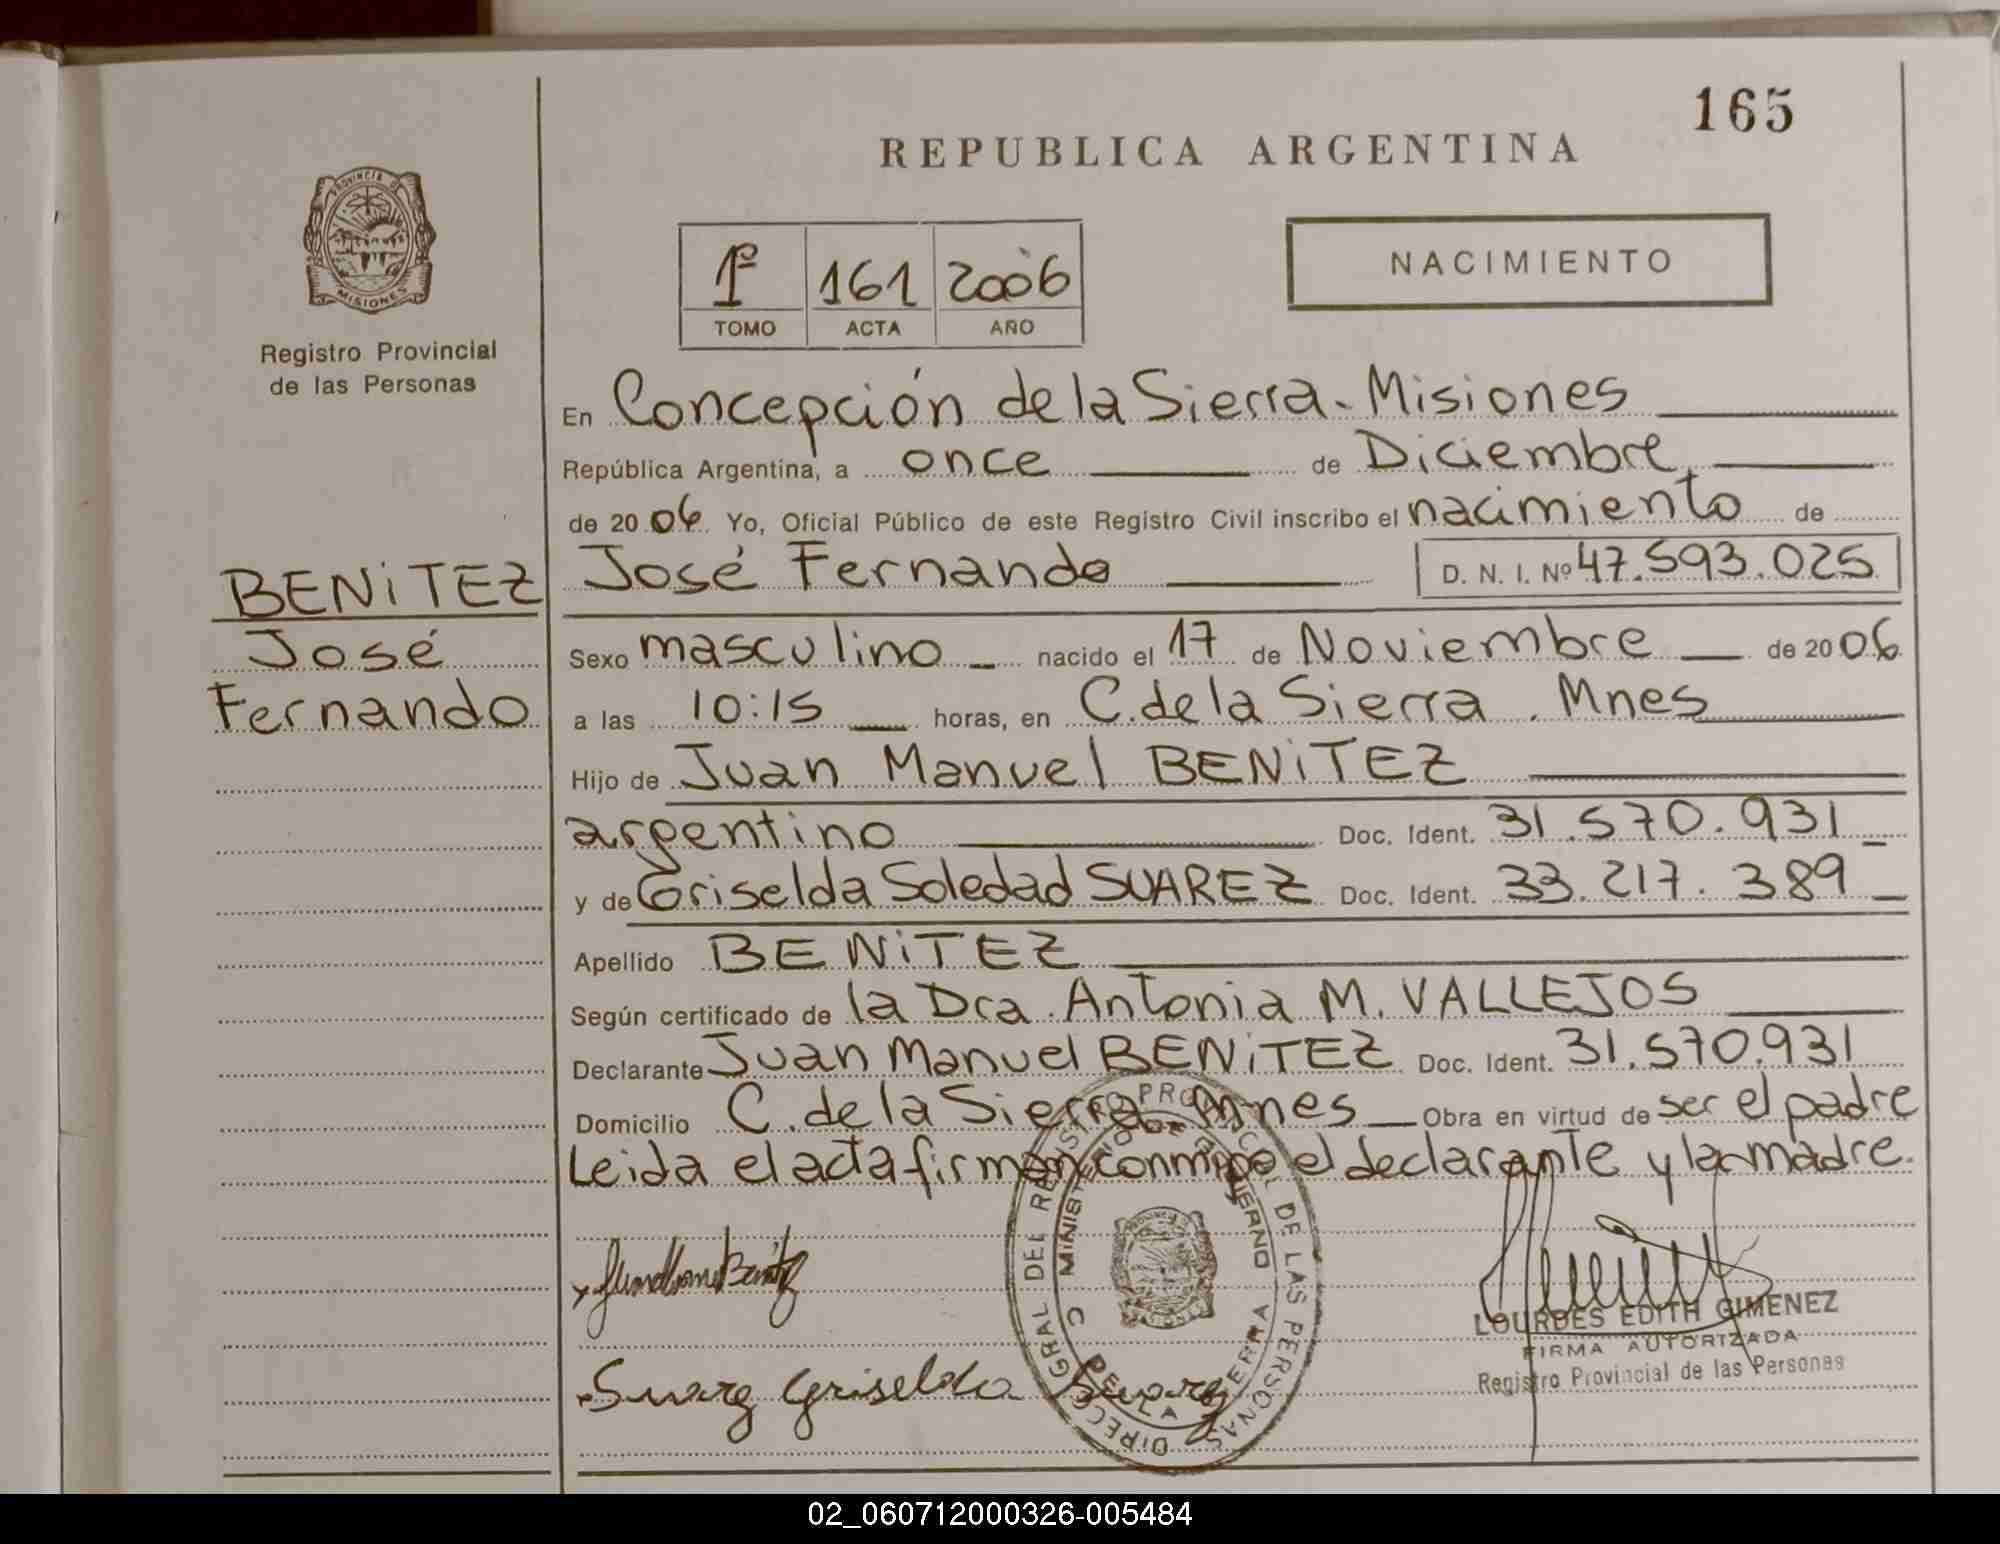 165
REPUBLICA ARGENTINA
PROVINCIA DE
MISIONES
Registro Provincial
de las Personas
1º 161 2006
TOMO ACTA AÑO
NACIMIENTO
En Concepción de la Sierra - Misiones
República Argentina, a once de Diciembre
de 2006 Yo, Oficial Público de este Registro Civil inscribo el nacimiento de
BENiTEZ José Fernando D. N. I. Nº 47.593.025
José Sexo masculino nacido el 17 de Noviembre de 2006
Fernando a las 10:15 horas, en C. de la Sierra . Mnes
Hijo de Juan Manuel BENiTEZ
argentino Doc. Ident. 31.570.931
y de Griselda Soledad SUAREZ Doc. Ident. 33.217.389
Apellido BENiTEZ
Según certificado de la Dra. Antonia M. VALLEJOS
Declarante Juan Manuel BENiTEZ Doc. Ident. 31.570.931
Domicilio C. de la Sierra Mnes Obra en virtud de ser el padre
Leida el acta firman conmigo el declarante y la madre.
Suarez Griselda
LOURDES EDITH GIMENEZ
FIRMA AUTORIZADA
Registro Provincial de las Personas
02_060712000326-005484